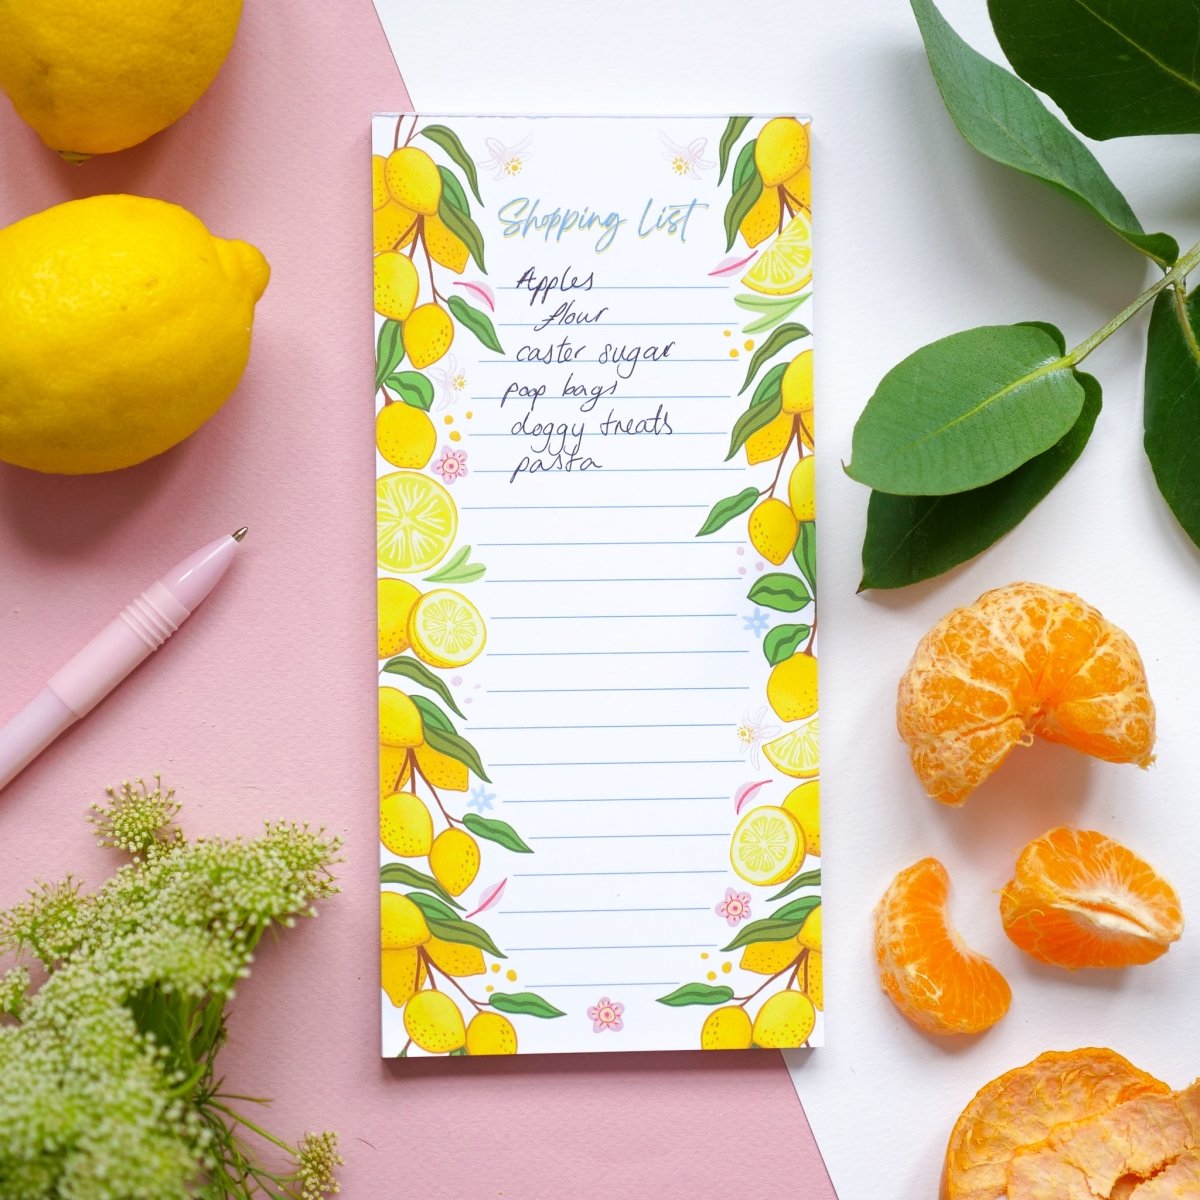 Shopping List
Apples
flour
caster sugar
poop bags
doggy treats
pasta